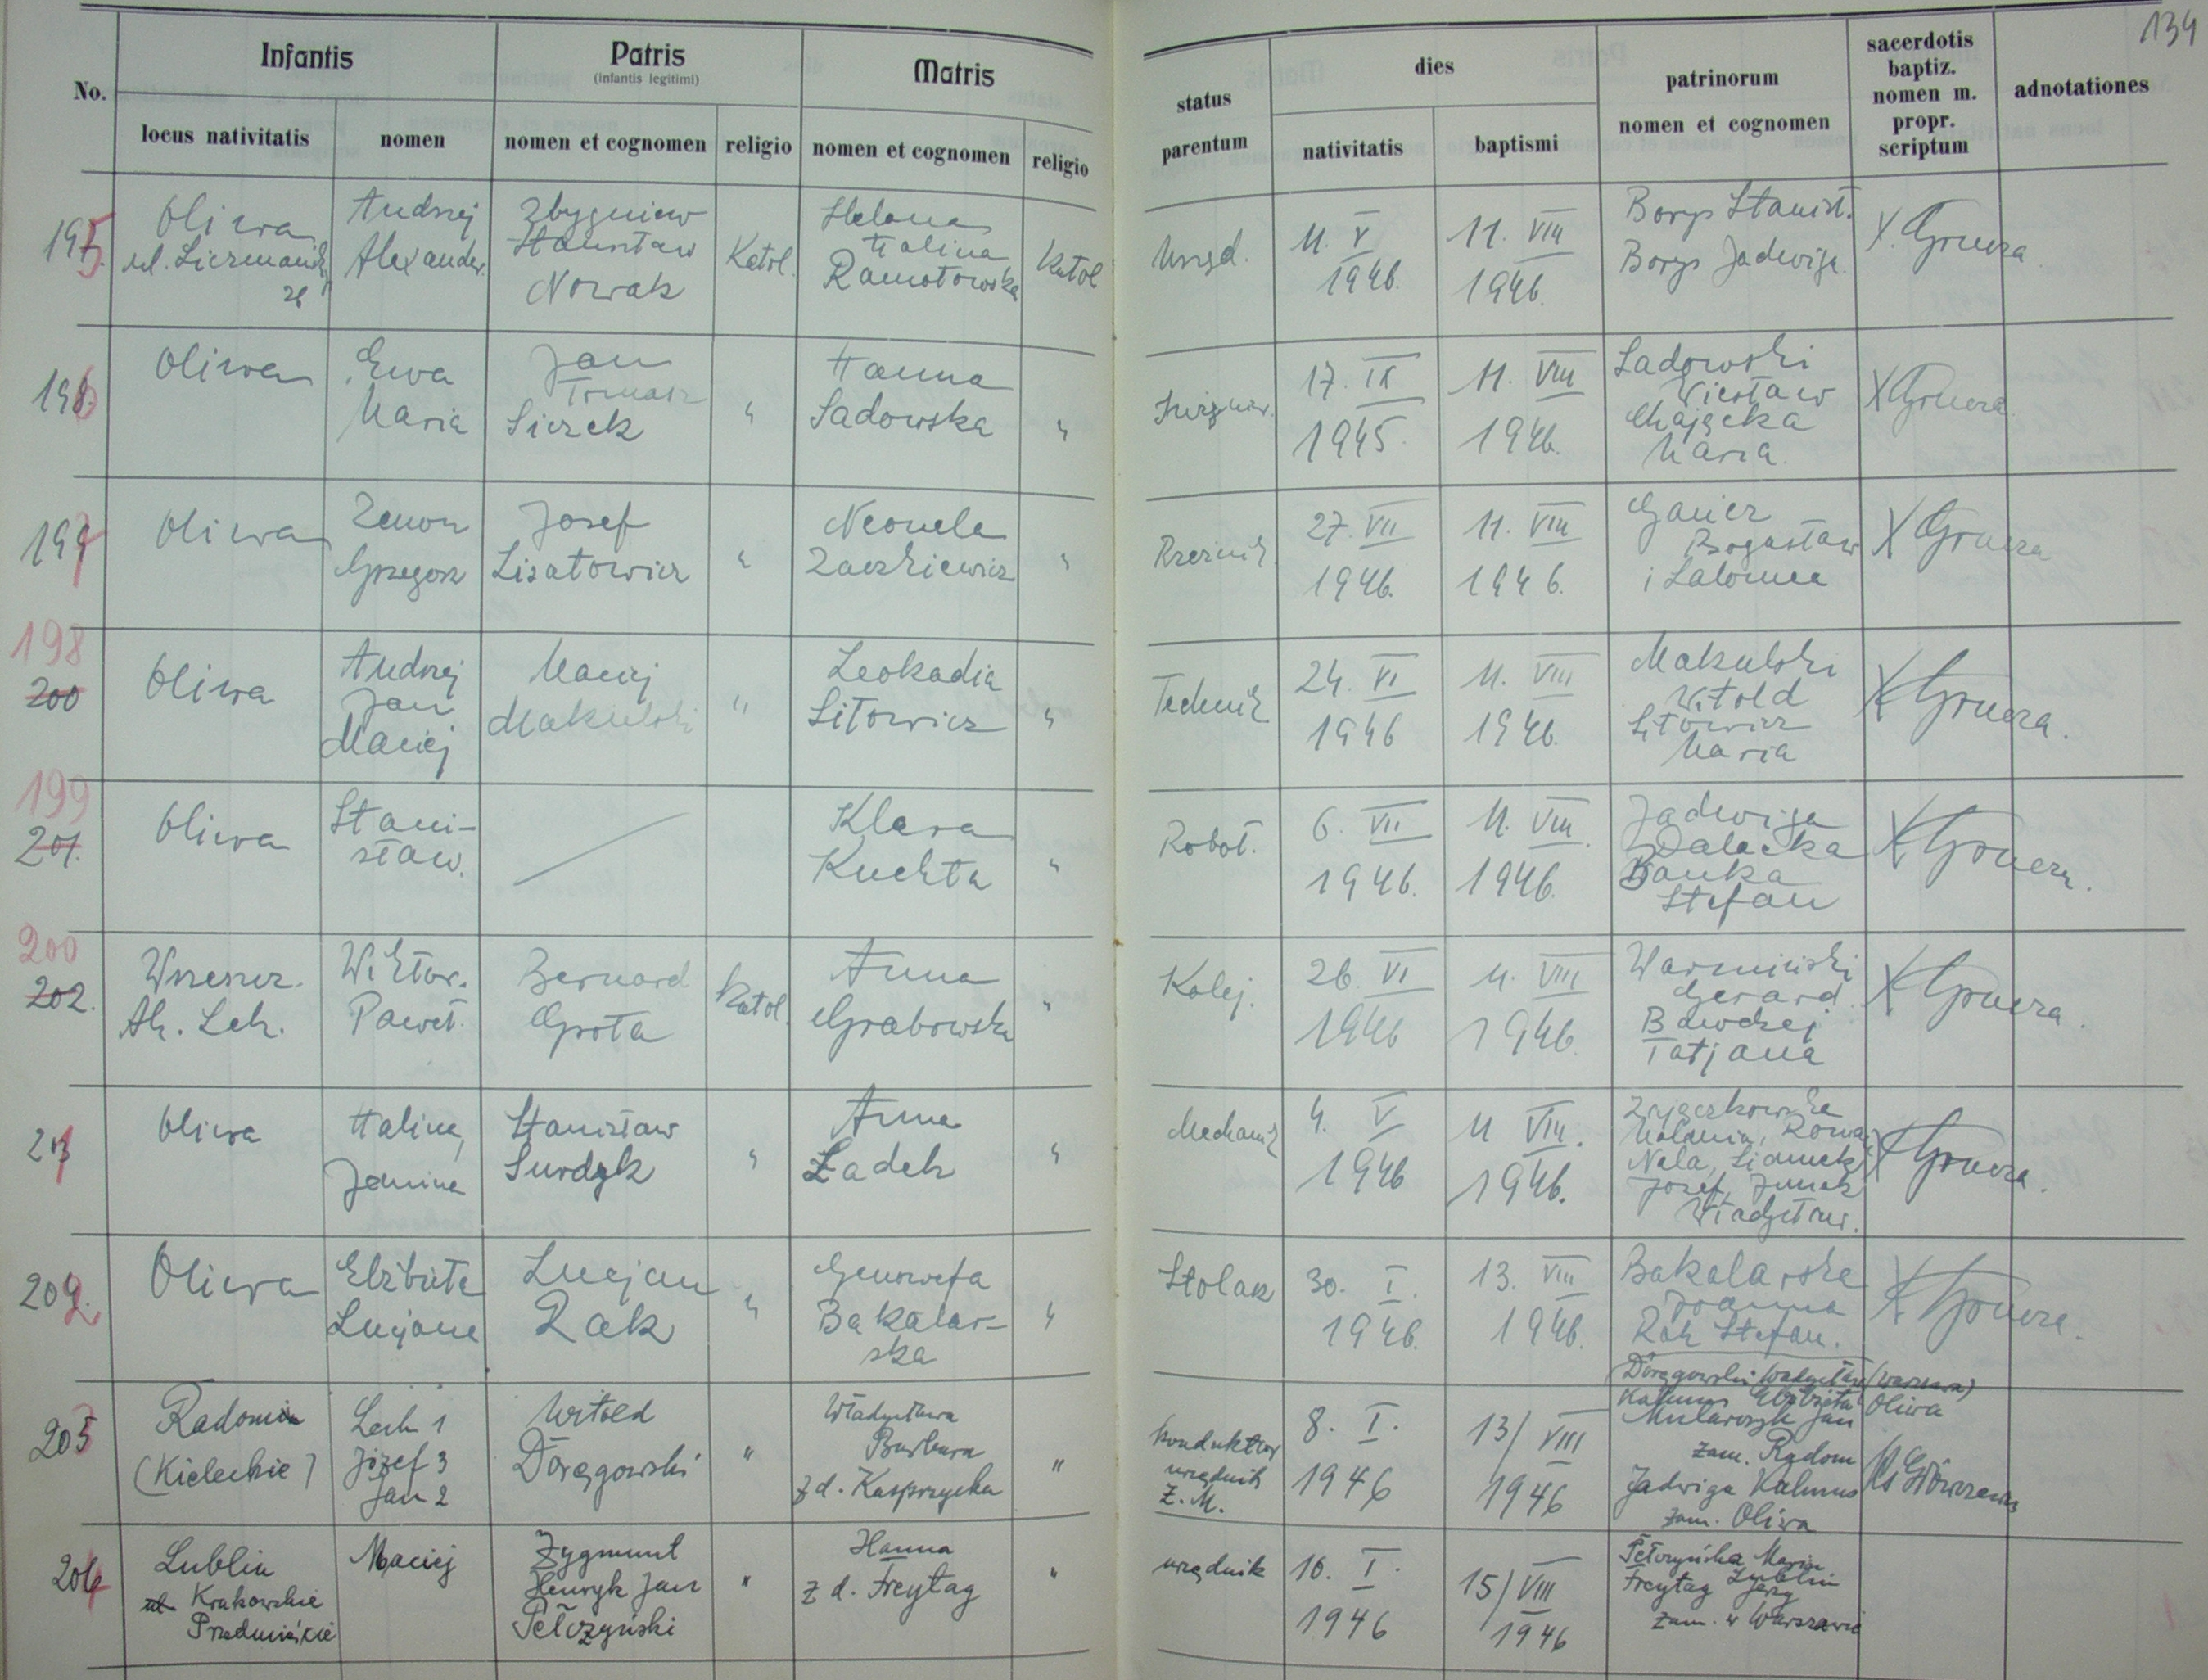 134
No.
Infantis
locus nativitatis
nomen
Patris
(infantis legitimi)
nomen et cognomen
religio
Matris
nomen et cognomen
religio
status
parentum
dies
nativitatis
baptismi
patrinorum
nomen et cognomen
sacerdotis
baptiz.
nomen m.
propr.
scriptum
adnotationes
195.
Oliwa
ul.
Andrzej
Alexander
Zbygniew
Stanisław
Nowak
Katol.
Helena
Halina
Ramotowska
Katol
Urzęd.
11. V
1946.
11. VIII
1946.
Borys Stanisł.
Borys Jadwiga
X. Grucza
196
Oliwa
Ewa
Maria
Jan
Tomasz
Siczek
"
Hanna
Sadowska
"
Inżynier.
17. IX
1945.
11. VIII
1946.
Sadowski
Wiesław
Chajęcka
Maria
X Grucza
197
Oliwa
Zenon
Grzegorz
Josef
Lisatowicz
"
Neonela
Zaczkiewicz
"
Rzeźnik
27. VII
1946.
11. VIII
1946.
Bogusław
i Salomea
X Grucza
198
200
Oliwa
Andrzej
Jan
Maciej
Maciej
Makulski
"
Leokadia
Sitowicz
"
Technik
24. VI
1946
11. VIII
1946.
Makulski
Witold
Sitowicz
Maria
X Grucza.
199
201.
Oliwa
Stani-
sław.
Klara
Kuchta
"
Robot.
6. VII
1946.
11. VIII.
1946.
Jadwiga
Dalecka
Banka
Stefan
X Grucza.
200
202.
Wrzeszcz.
Ak. Lek.
Wiktor.
Paweł.
Bernard
Grota
Katol.
Anna
Grabowska
"
Kolej.
26. VI
1946
11. VIII
1946.
Warmiński
Gerard
Tatjana
X Grucza.
201
Oliwa
Halina,
Janina
Stanisław
Surdyk
"
Anna
Ładek
"
Mechanik
4. V
1946
11 VIII.
1946.
Zajączkowska
Nela,
Józef,
Władysław.
X Grucza.
202.
Oliwa
Elżbieta
Lucjana
Lucjan
Rak
"
Genowefa
Bakalar-
ska
"
Stolarz
30. I.
1946.
13. VIII
1946.
Bakalarska
Joanna
Rak Stefan.
X Grucza.
203
Radomin
(Kieleckie)
Lech 1
Józef 3
Jan 2
Witold
Doręgowski
"
Władysława
Barbara
z d. Kasprzycka
"
konduktor
urzędnik
Z. M.
8. I.
1946
13/VIII
1946
Doręgowski Władysław (Warszawa)
Kalmus Elżbieta Oliwa
Mularczyk Jan
zam. Radom
Jadwiga Kalmus
zam. Oliwa
204
Lublin
ul. Krakowskie
Przedmieście
Maciej
Zygmunt
Henryk Jan
Pełczyński
"
Hanna
z d. Freytag
"
urzędnik
16. I.
1946
15/VIII
1946
Pełczyńska Maria
Lublin
Freytag Jerzy
zam. w Warszawie